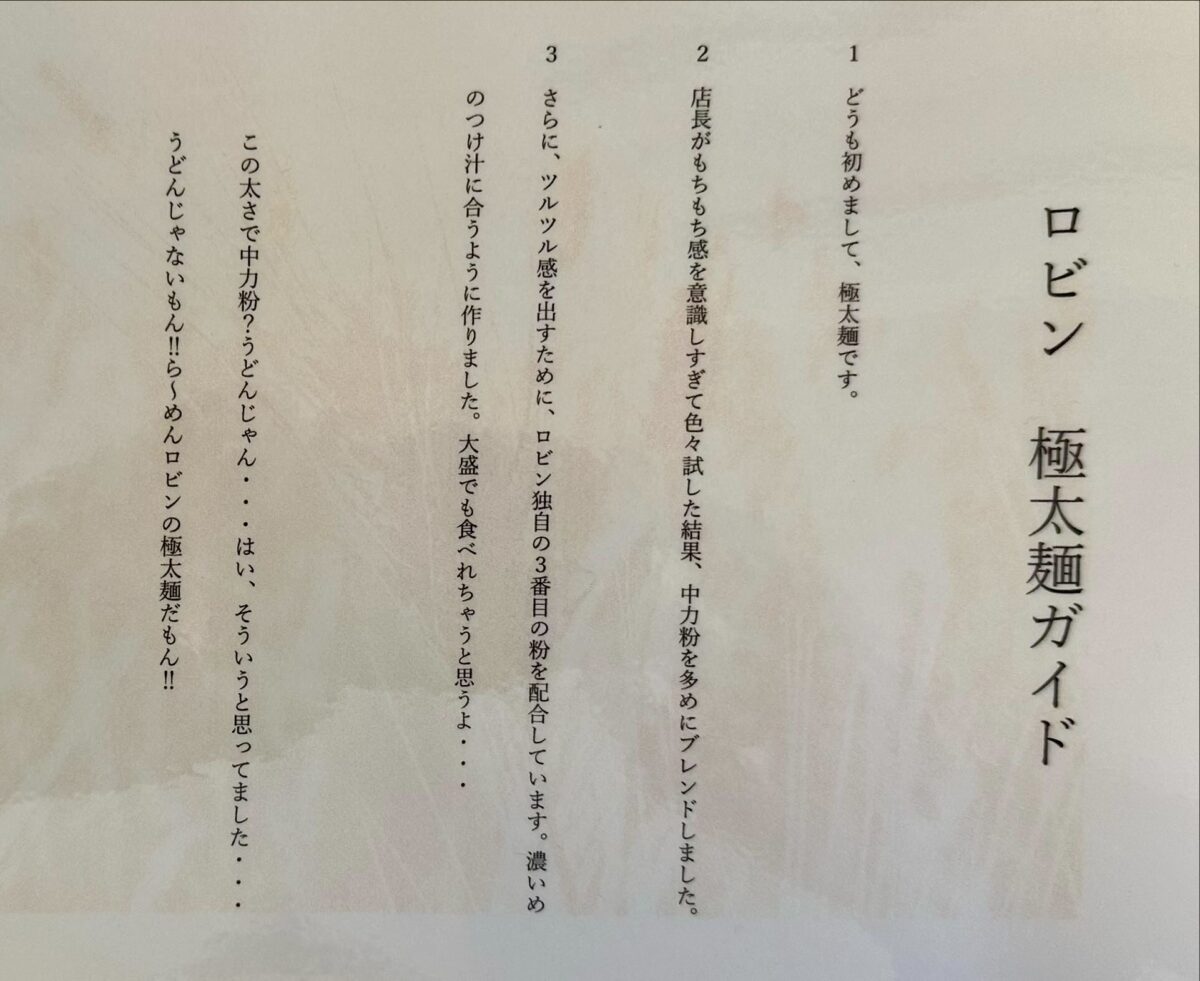 ロビン　極太麺ガイド
1　どうも初めまして、極太麺です。
2　店長がもちもち感を意識しすぎて色々試した結果、中力粉を多めにブレンドしました。
3　さらに、ツルツル感を出すために、ロビン独自の3番目の粉を配合しています。濃いめ
のつけ汁に合うように作りました。大盛でも食べれちゃうと思うよ・・・
この太さで中力粉？うどんじゃん・・・はい、そういうと思ってました・・・
うどんじゃないもん!!ら～めんロビンの極太麺だもん!!